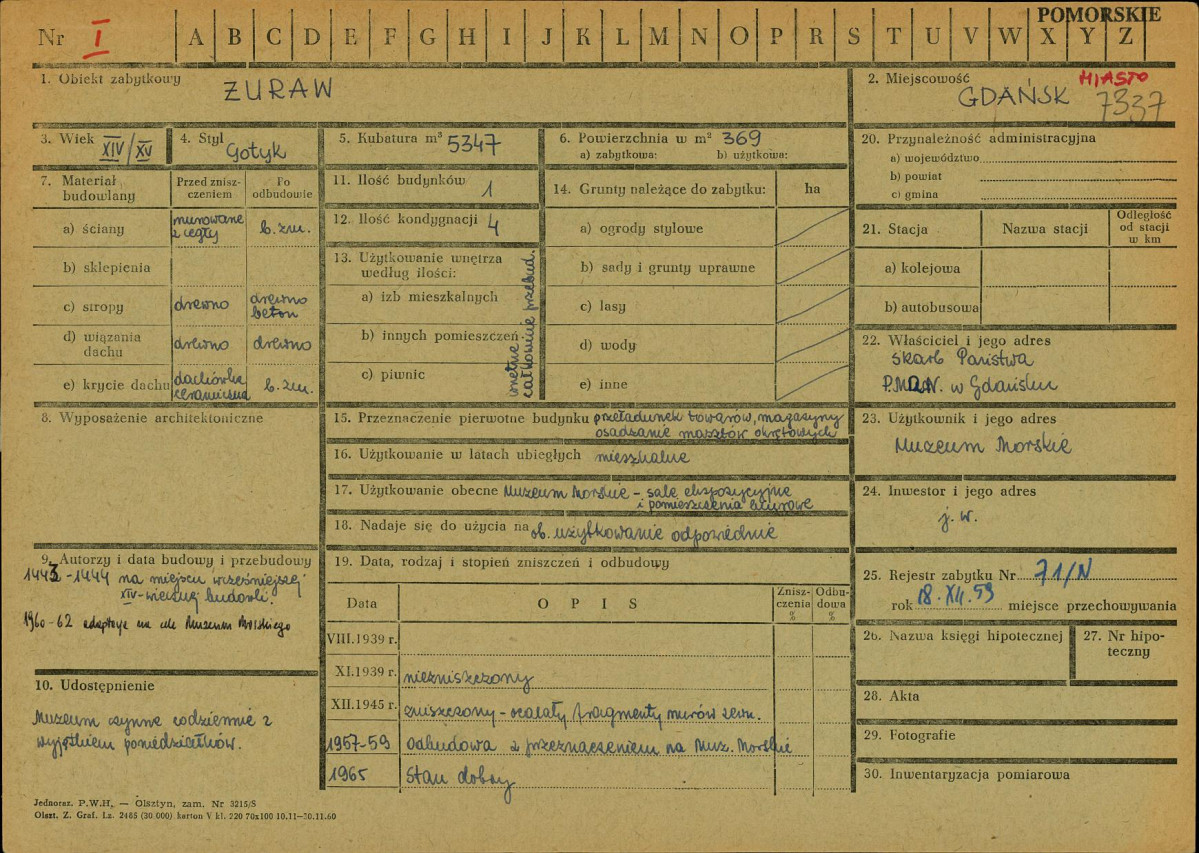 POMORSKIE
Nr I A B C D E F G H I J K L M N O P R S T U V W X Y Z
1. Obiekt zabytkowy
ŻURAW
2. Miejscowość
MIASTO
GDAŃSK 7337
3. Wiek XIV/XV
4. Styl Gotyk
5. Kubatura m³ 5347
6. Powierzchnia w m² 369
a) zabytkowa: b) użytkowa:
20. Przynależność administracyjna
a) województwo
b) powiat
c) gmina
7. Materiał budowlany
Przed zniszczeniem
Po odbudowie
a) ściany murowane z cegły b. zm.
b) sklepienia
c) stropy drewno drewno beton
d) wiązania dachu drewno drewno
e) krycie dachu dachówka ceramiczna b. zm.
11. Ilość budynków 1
12. Ilość kondygnacji 4
13. Użytkowanie wnętrza według ilości:
a) izb mieszkalnych
b) innych pomieszczeń
c) piwnic
wnętrze całkowicie przebud.
14. Grunty należące do zabytku: ha
a) ogrody stylowe
b) sady i grunty uprawne
c) lasy
d) wody
e) inne
21. Stacja
Nazwa stacji
Odległość od stacji w km
a) kolejowa
b) autobusowa
22. Właściciel i jego adres
Skarb Państwa
w Gdańsku
8. Wyposażenie architektoniczne
15. Przeznaczenie pierwotne budynku przeładunek towarów, magazyny
osadzanie masztów okrętowych
16. Użytkowanie w latach ubiegłych mieszkalne
17. Użytkowanie obecne Muzeum Morskie - sale ekspozycyjne
i pomieszczenia biurowe
18. Nadaje się do użycia na ob. użytkowanie odpowiednie
23. Użytkownik i jego adres
Muzeum Morskie
24. Inwestor i jego adres
j. w.
9. Autorzy i data budowy i przebudowy
1443-1444 na miejscu wcześniejszej
XIV-wiecznej budowli.
1960-62 adaptacja na cele Muzeum Morskiego
19. Data, rodzaj i stopień zniszczeń i odbudowy
Data
O P I S
Zniszczenia %
Odbudowa %
VIII.1939 r.
XI.1939 r. niezniszczony
XII.1945 r. zniszczony - ocalały fragmenty murów zewn.
1957-59 odbudowa z przeznaczeniem na Muz. Morskie
1965 Stan dobry
25. Rejestr zabytku Nr 71/N
rok 18.XII.59 miejsce przechowywania
26. Nazwa księgi hipotecznej
27. Nr hipoteczny
10. Udostępnienie
Muzeum czynne codziennie z
wyjątkiem poniedziałków.
28. Akta
29. Fotografie
30. Inwentaryzacja pomiarowa
Jednoraz. P.W.H. — Olsztyn, zam. Nr 3215/S
Olszt. Z. Graf. Lz. 2485 (30 000) karton V kl. 220 70x100 10.11—30.11.60